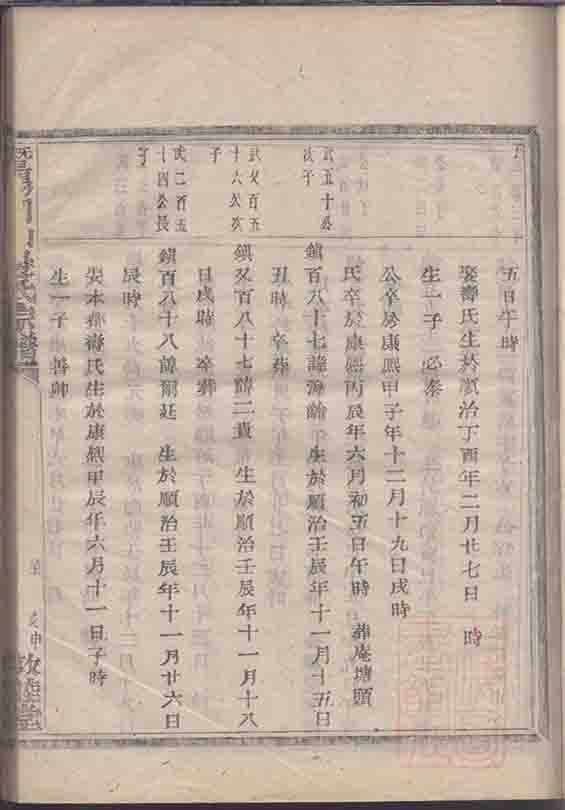 五日午時
娶壽氏生於順治丁酉年二月廿七日 時
生一子 必泰
公卒於康熙甲子年十二月十九日戌時
氏卒於康熙丙辰年六月初五日午時 葬庵塘頭
武五十公
次子
鎮百八十七諱源 生於順治壬辰年十一月十五日
丑時 卒 葬
武又百五
十六公次
子
鎮又百八十七諱二貴 生於順治壬辰年十一月十八
日戌時 卒 葬
武二百五
十四公長
子
鎮百八十八諱爾廷 生於順治壬辰年十一月廿六日
辰時
娶本都壽氏生於康熙甲辰年六月十一日子時
生一子 善卿
宗譜
敦睦堂